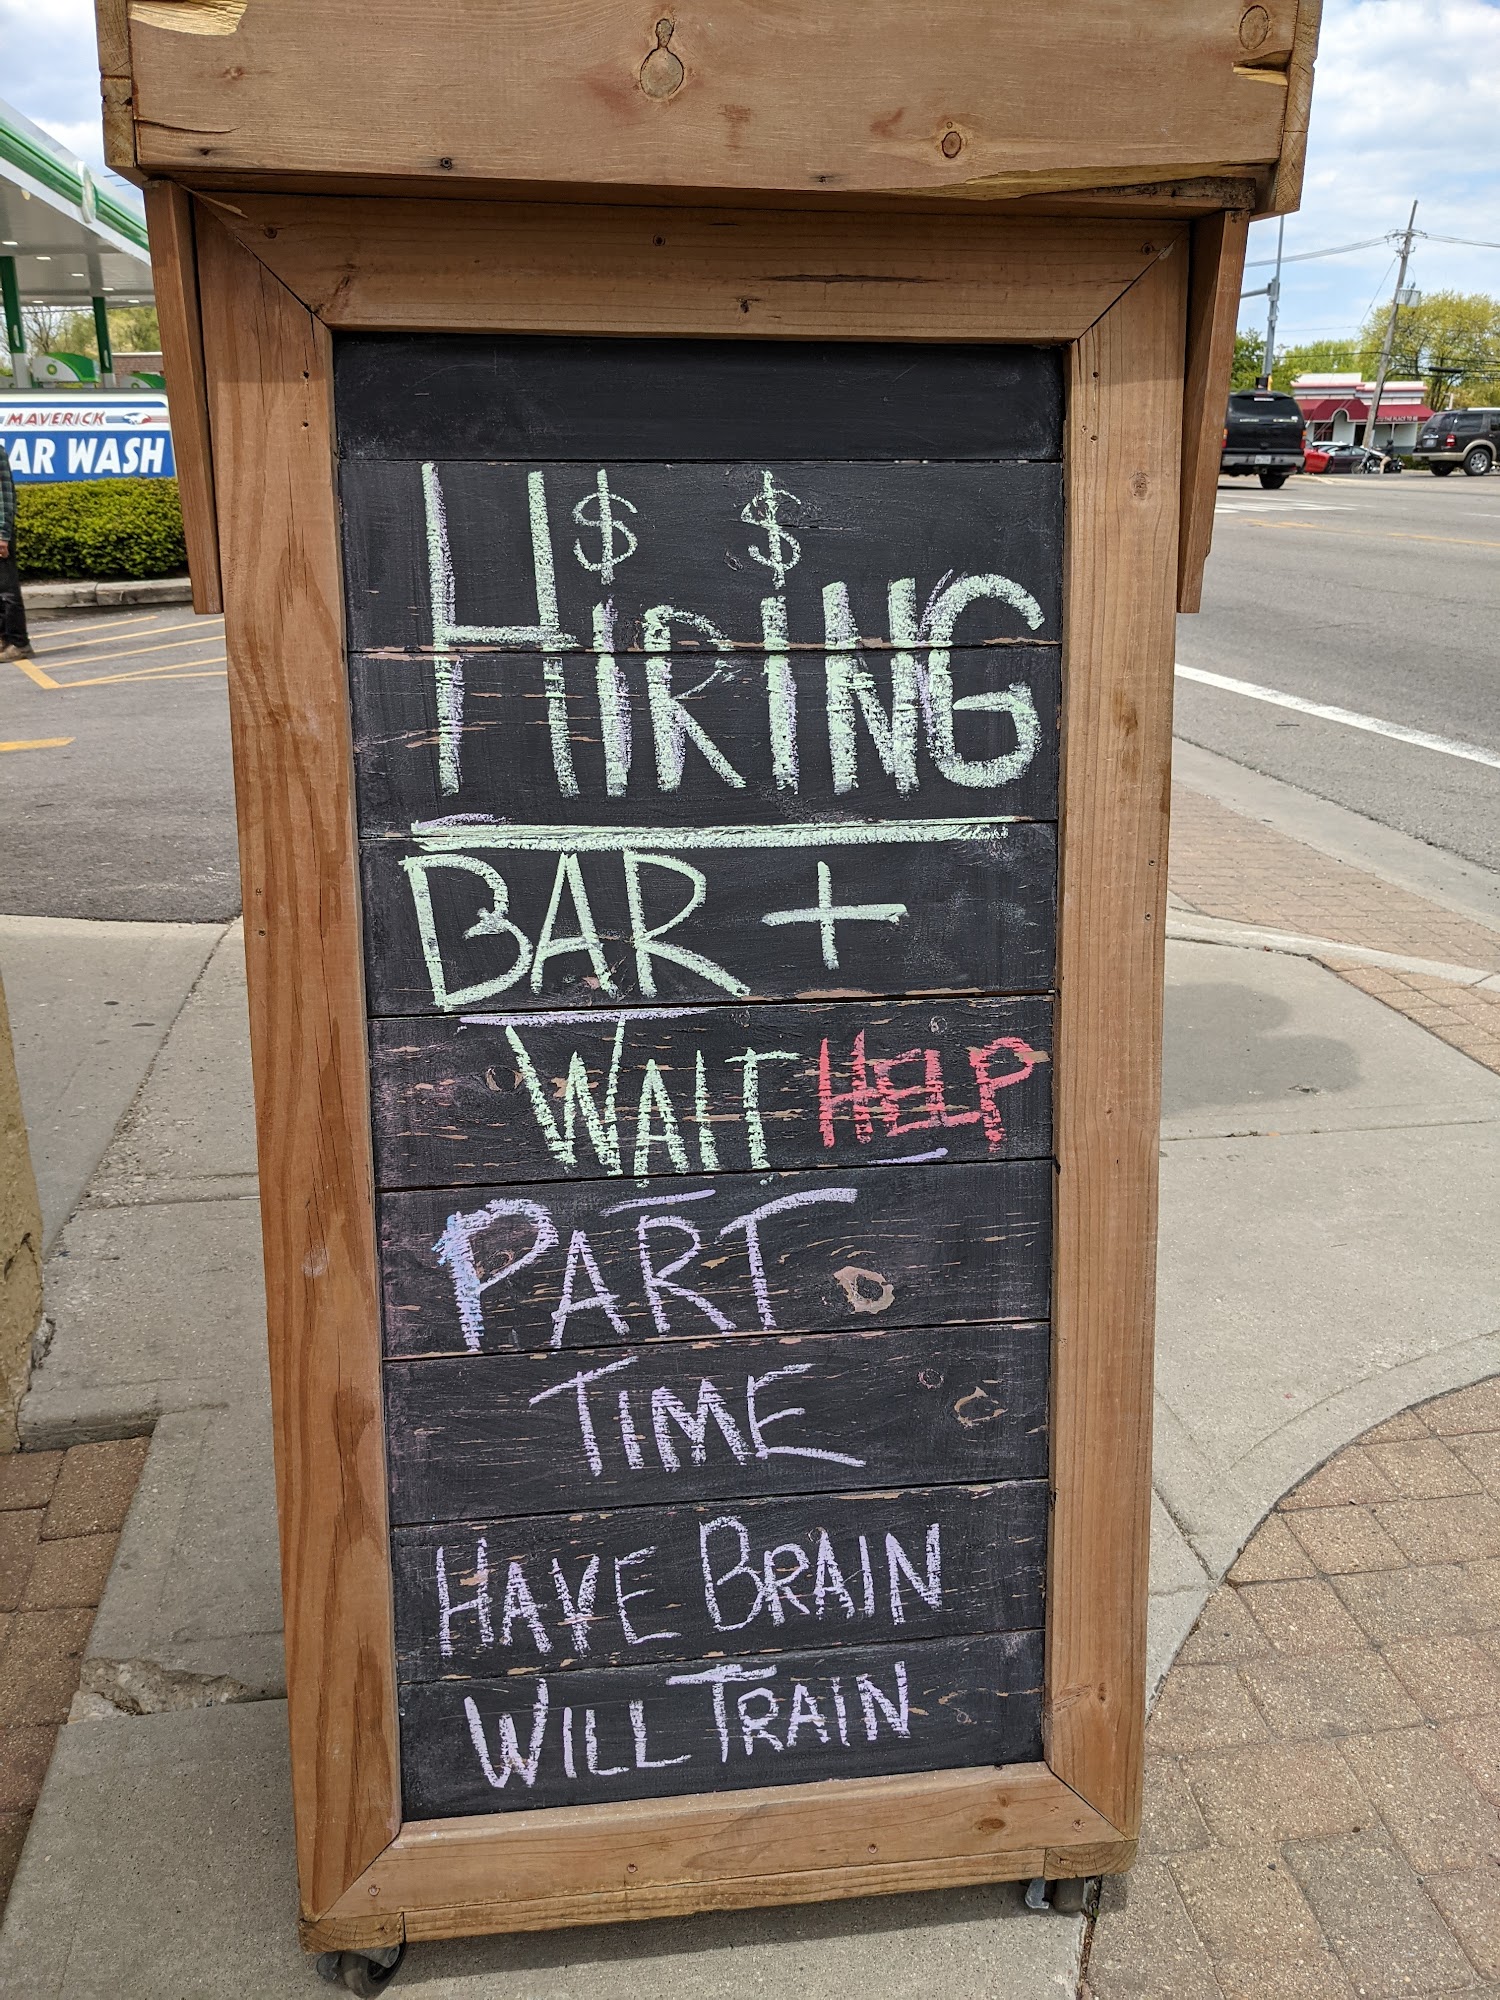 $ $
HIRING
BAR +
WAIT HELP
PART
TIME
HAVE BRAIN
WILL TRAIN
MAVERICK
AR WASH
bp